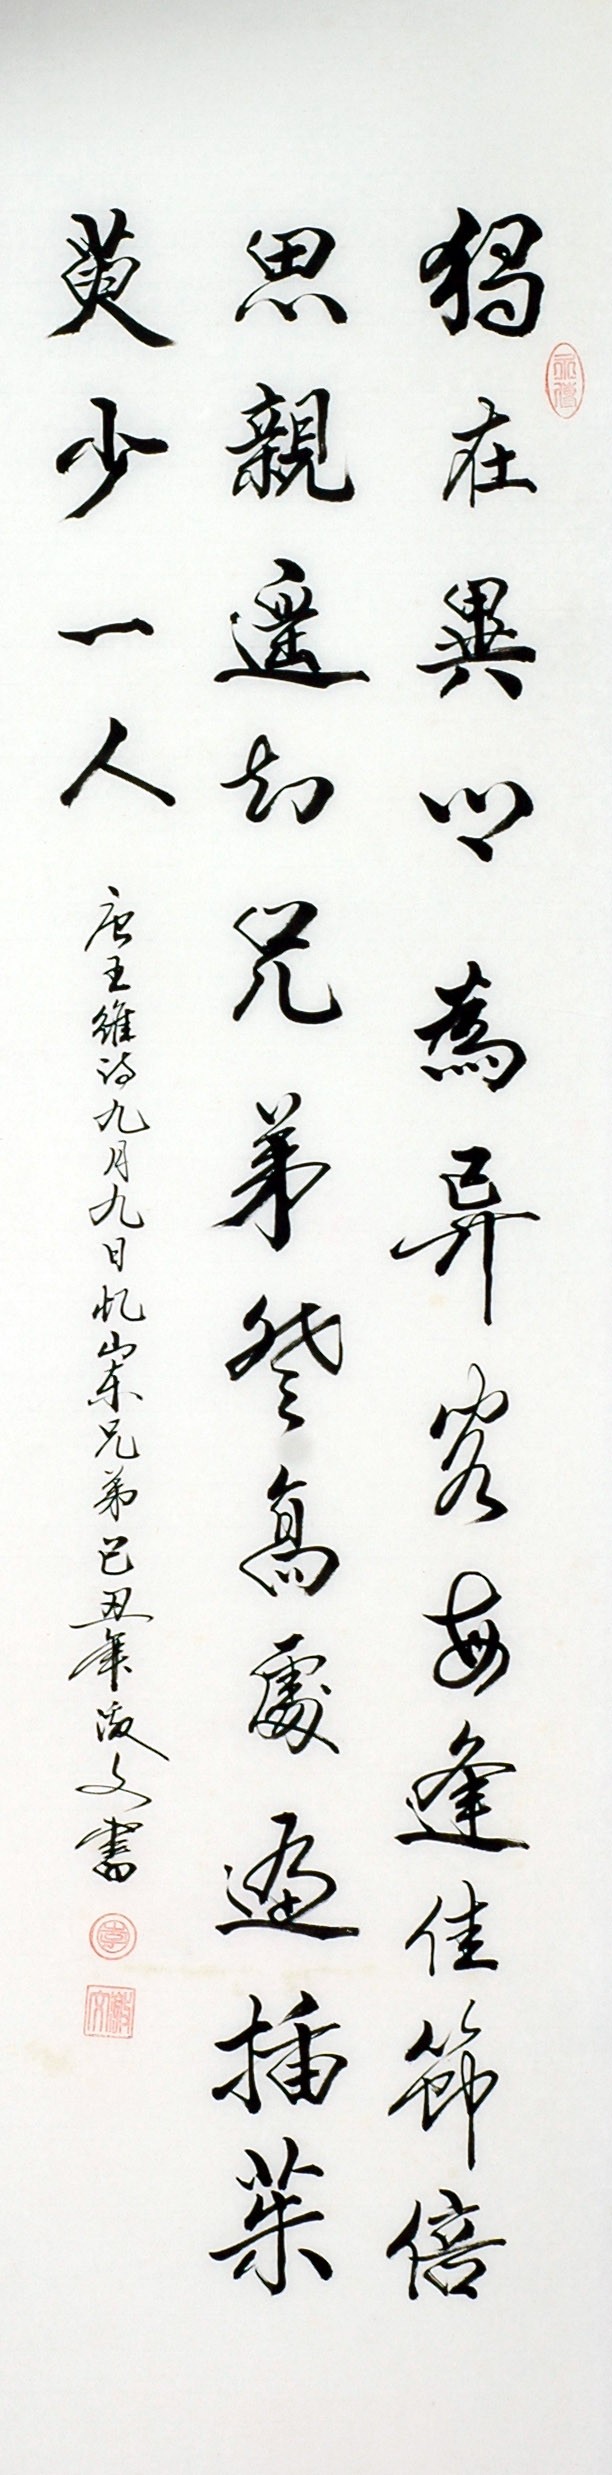 獨在異鄉為異客每逢佳節倍
思親遥知兄弟登高處遍插茱
萸少一人
唐王維詩九月九日忆山东兄弟己丑年淑文書